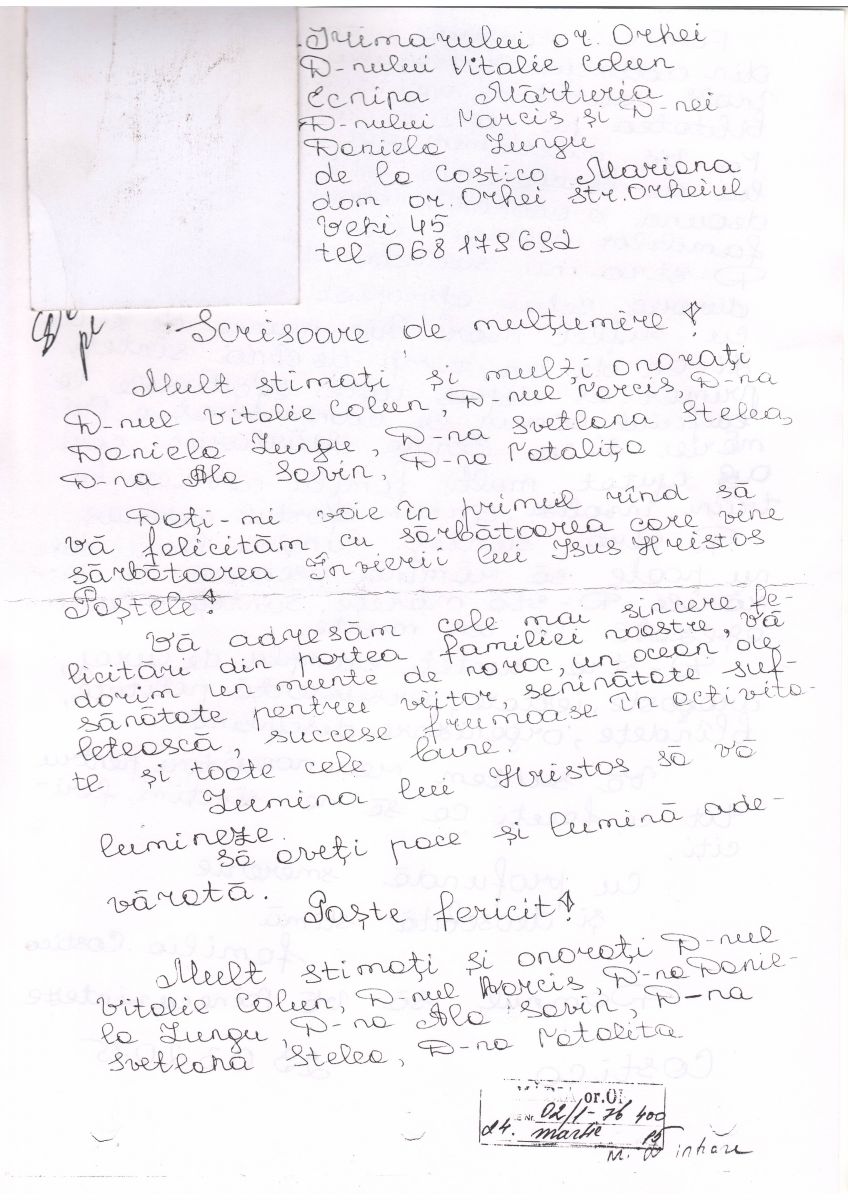 Primarului or. Orhei
D-nului Vitalie Colun
Ecnipa Mărturia
D-nului Narcis și D-nei
Daniela Lungu
de la Costico Mariana
dom or. Orhei str. Orheiul
Veki 45
tel 068 179692
Scrisoare de mulțumire!
Mult stimați și mulți onorați
D-nul Vitalie Colun, D-nul Narcis, D-na
Daniela Lungu, D-na Svetlana Stelea,
D-na Ala Savin, D-na Natalița
Dați-mi voie în primul rînd să
vă felicităm cu sărbătoarea care vine
sărbătoarea Învierii lui Isus Hristos
Paștele!
Vă adresăm cele mai sincere fe-
licitări din partea familiei noastre, vă
dorim un munte de noroc, un ocean de
sănătate pentru viitor seninătate suf-
letească, succese frumoase în activita-
te și toate cele bune.
Lumina lui Hristos să vă
lumineze.
Să aveți pace și lumină ade-
vărată.
Paște fericit!
Mult stimați și onorați D-nul
Vitalie Colun, D-nul Narcis, D-na Danie-
la Lungu, D-na Ala Savin, D-na
Svetlana Stelea, D-na Natalita
or.
Nr. 02/1-76 400
24. martie 15